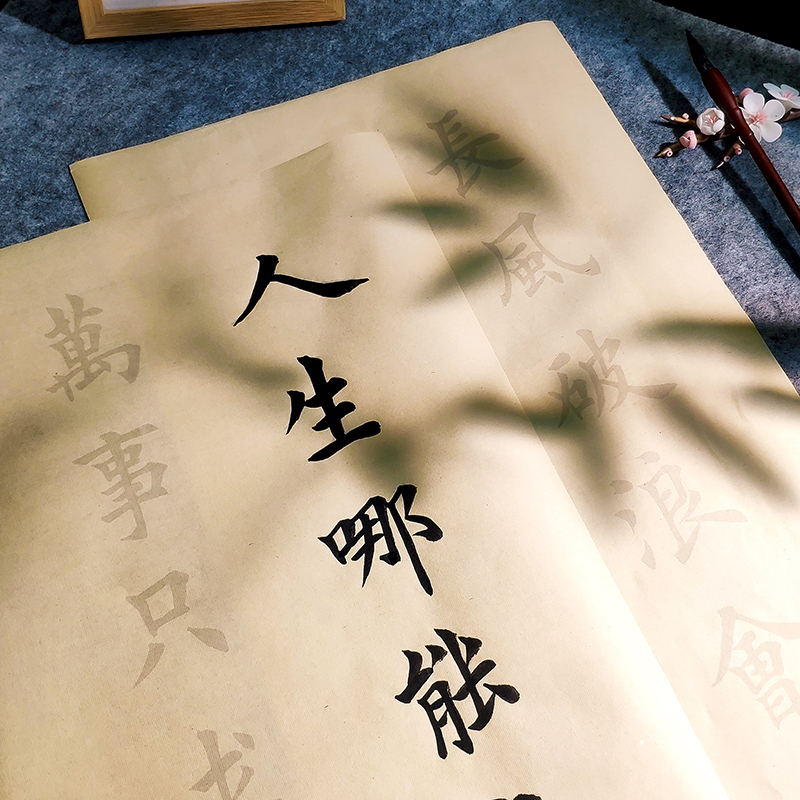 長風破浪會
人生哪能
萬事只